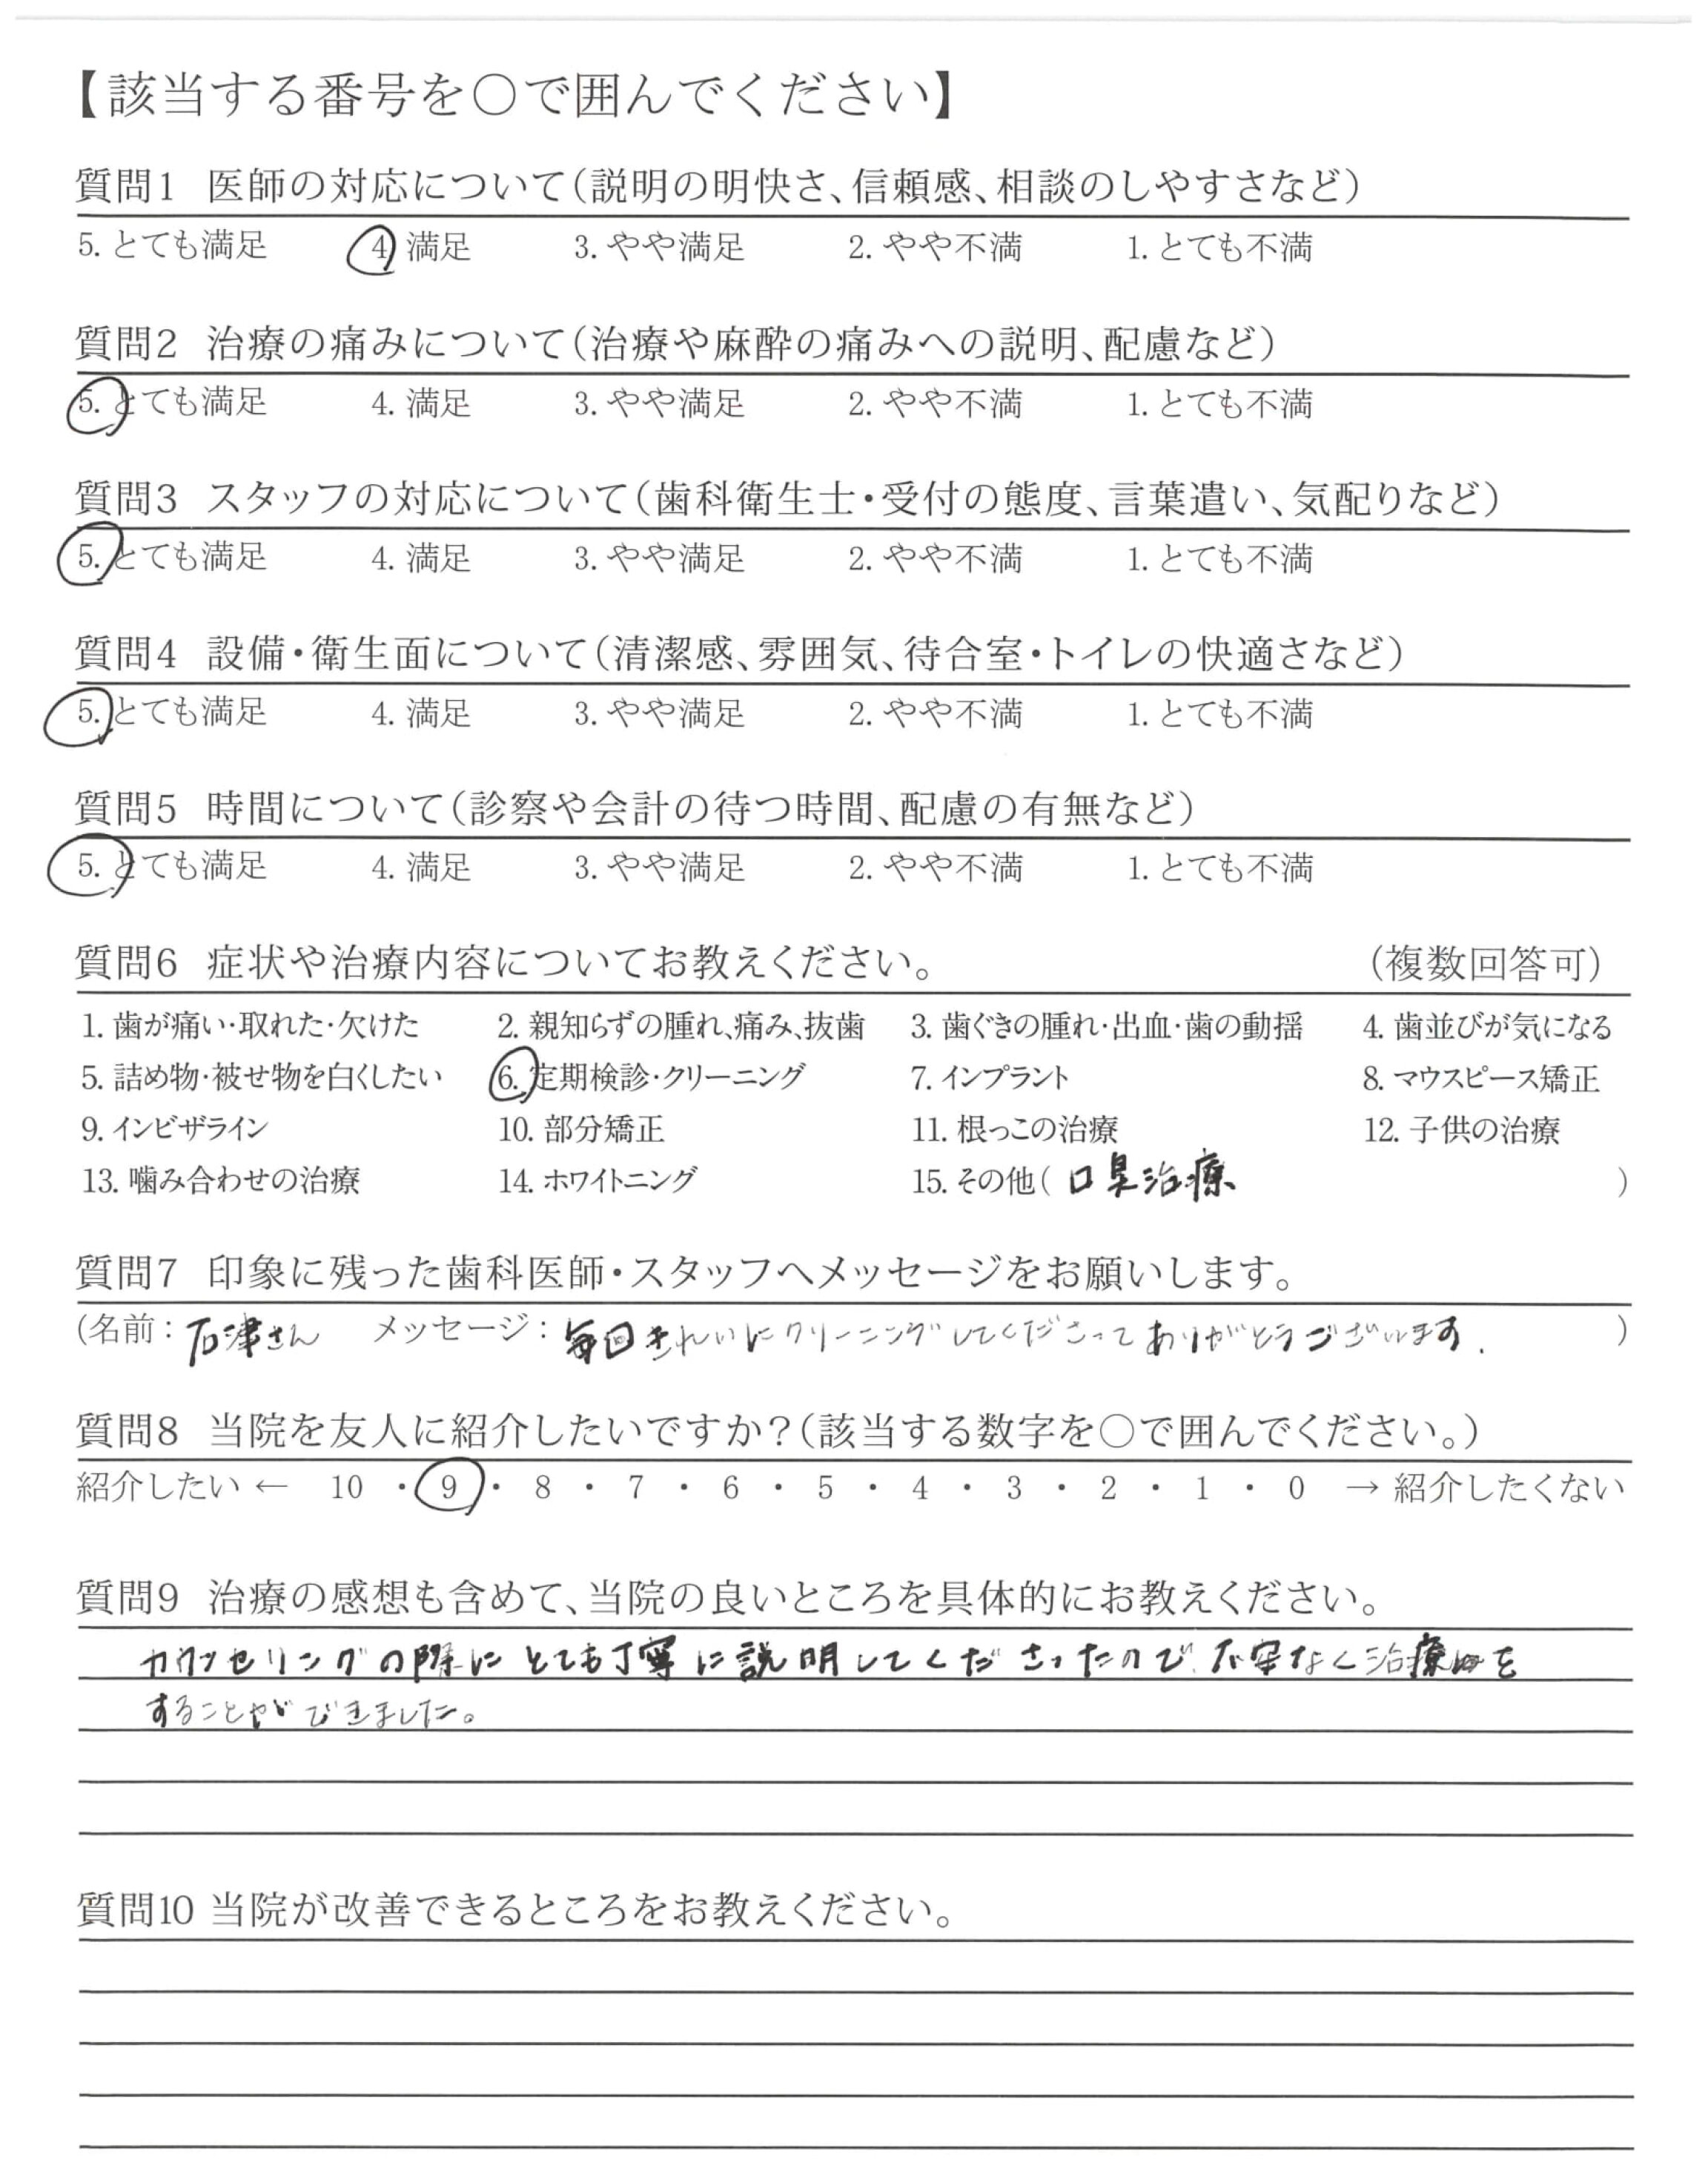 【該当する番号を○で囲んでください】
質問1 医師の対応について(説明の明快さ、信頼感、相談のしやすさなど)
5. とても満足 4. 満足 3. やや満足 2. やや不満 1. とても不満
質問2 治療の痛みについて(治療や麻酔の痛みへの説明、配慮など)
5. とても満足 4. 満足 3. やや満足 2. やや不満 1. とても不満
質問3 スタッフの対応について(歯科衛生士・受付の態度、言葉遣い、気配りなど)
5. とても満足 4. 満足 3. やや満足 2. やや不満 1. とても不満
質問4 設備・衛生面について(清潔感、雰囲気、待合室・トイレの快適さなど)
5. とても満足 4. 満足 3. やや満足 2. やや不満 1. とても不満
質問5 時間について(診察や会計の待つ時間、配慮の有無など)
5. とても満足 4. 満足 3. やや満足 2. やや不満 1. とても不満
質問6 症状や治療内容についてお教えください。 (複数回答可)
1. 歯が痛い・取れた・欠けた 2. 親知らずの腫れ、痛み、抜歯 3. 歯ぐきの腫れ・出血・歯の動揺 4. 歯並びが気になる
5. 詰め物・被せ物を白くしたい 6. 定期検診・クリーニング 7. インプラント 8. マウスピース矯正
9. インビザライン 10. 部分矯正 11. 根っこの治療 12. 子供の治療
13. 噛み合わせの治療 14. ホワイトニング 15. その他( 口臭治療 )
質問7 印象に残った歯科医師・スタッフへメッセージをお願いします。
(名前: 石津さん メッセージ: 毎回きれいにクリーニングしてくださってありがとうございます. )
質問8 当院を友人に紹介したいですか?(該当する数字を○で囲んでください。)
紹介したい ← 10 ・ 9 ・ 8 ・ 7 ・ 6 ・ 5 ・ 4 ・ 3 ・ 2 ・ 1 ・ 0 → 紹介したくない
質問9 治療の感想も含めて、当院の良いところを具体的にお教えください。
カウンセリングの際にとても丁寧に説明してくださったので、不安なく治療を
することができました。
質問10 当院が改善できるところをお教えください。